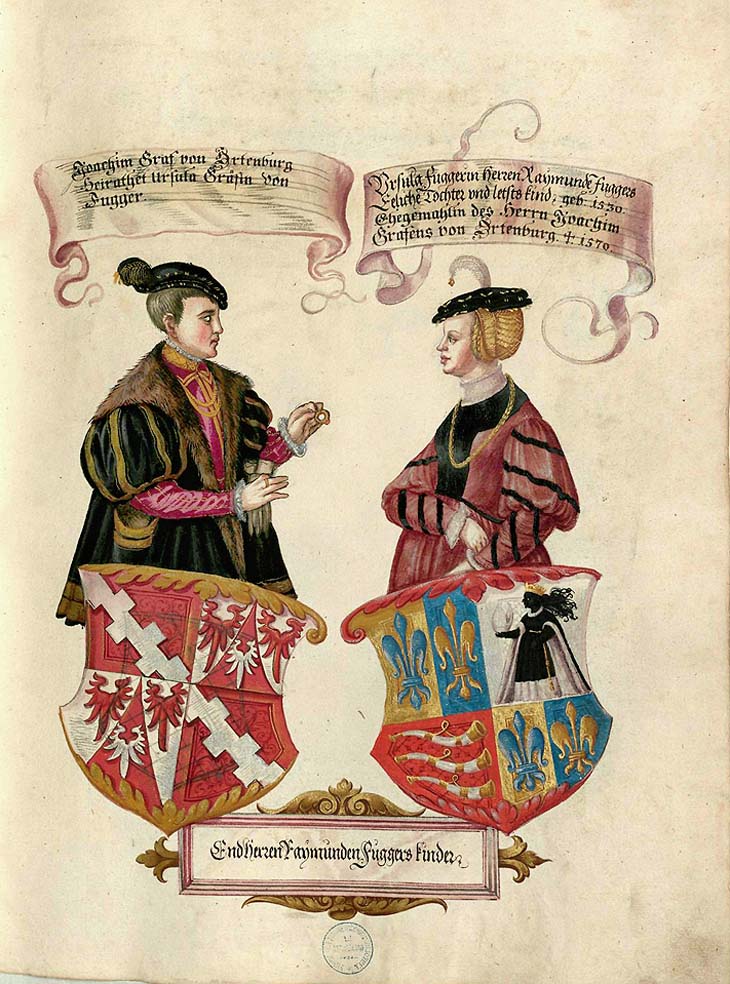 Joachim Graf von Ortenburg
Heirathet Ursula Gräfin von
Fugger.
Vrsula Fuggerin Herren Raymunde fuggers
Eeliche Tochter vnd letsts kind, geb. 1530.
Ehegemahlin des Herrn Joachim
Grafens von Ortenburg. † 1570.
End Herren Raymunden Fuggers kinder